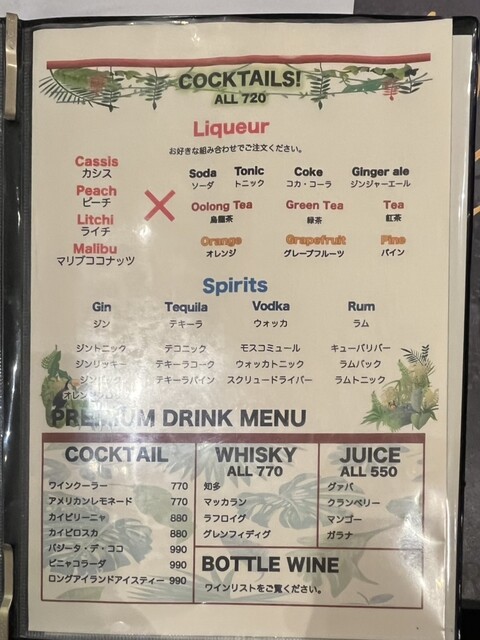 COCKTAILS!
ALL 720
Liqueur
お好きな組み合わせでご注文ください。
Cassis
カシス
Peach
ピーチ
Litchi
ライチ
Malibu
マリブココナッツ
×
Soda Tonic Coke Ginger ale
ソーダ トニック コカ・コーラ ジンジャーエール
Oolong Tea Green Tea Tea
烏龍茶 緑茶 紅茶
Orange Grapefruit Pine
オレンジ グレープフルーツ パイン
Spirits
Gin Tequila Vodka Rum
ジン テキーラ ウォッカ ラム
ジントニック テコニック モスコミュール キューバリバー
ジンリッキー テキーラコーク ウォッカトニック ラムバック
テキーラパイン スクリュードライバー ラムトニック
PREMIUM DRINK MENU
COCKTAIL
ワインクーラー 770
アメリカンレモネード 770
カイピリーニャ 880
カイピロスカ 880
バジータ・デ・ココ 990
ピニャコラーダ 990
ロングアイランドアイスティー 990
WHISKY
ALL 770
知多
マッカラン
ラフロイグ
グレンフィディグ
JUICE
ALL 550
グァバ
クランベリー
マンゴー
ガラナ
BOTTLE WINE
ワインリストをご覧ください。